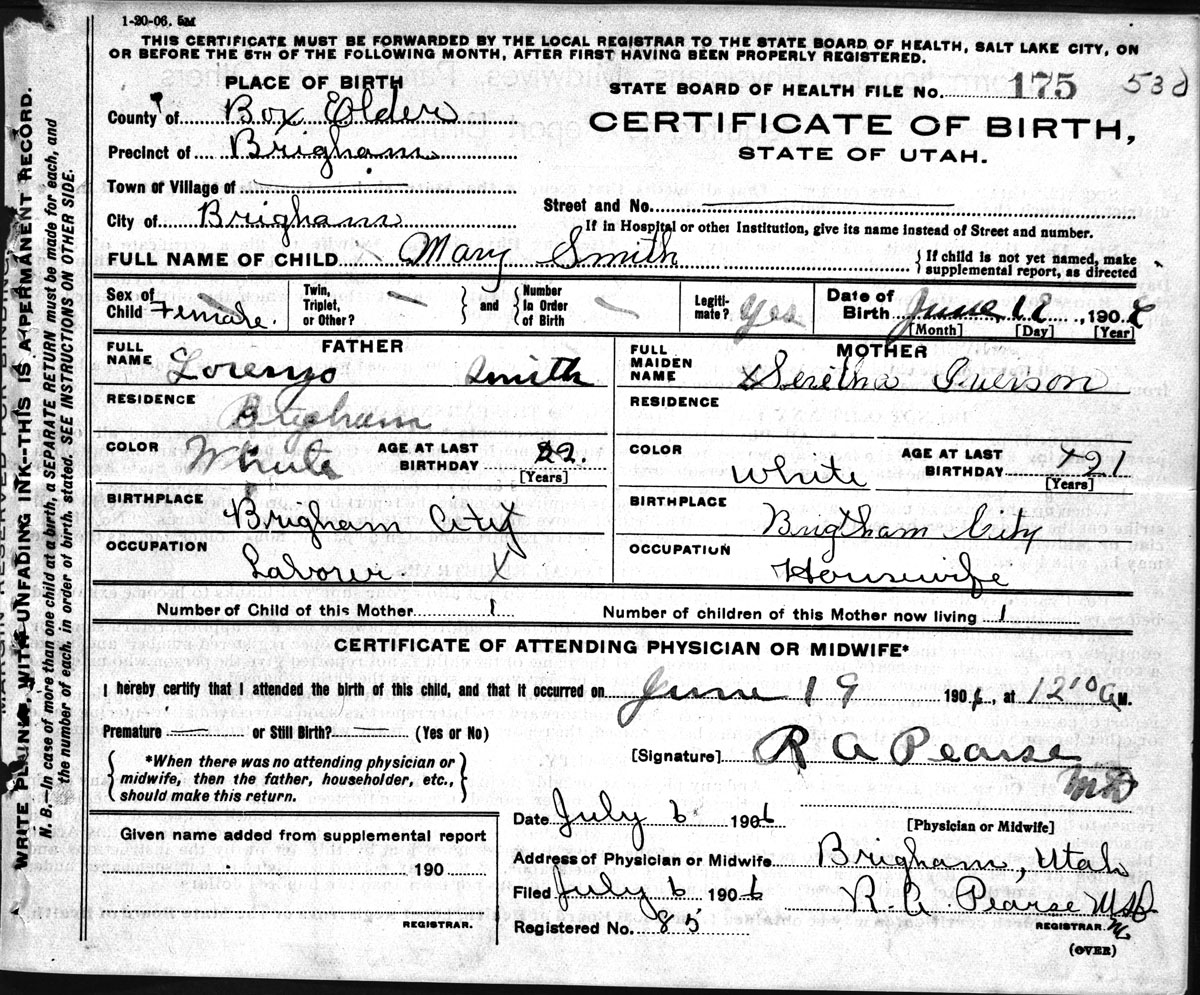 1-20-06. 5M
THIS CERTIFICATE MUST BE FORWARDED BY THE LOCAL REGISTRAR TO THE STATE BOARD OF HEALTH, SALT LAKE CITY, ON
OR BEFORE THE 5TH OF THE FOLLOWING MONTH, AFTER FIRST HAVING BEEN PROPERLY REGISTERED.
PLACE OF BIRTH
STATE BOARD OF HEALTH FILE No. 175 53
County of Box Elder
CERTIFICATE OF BIRTH,
STATE OF UTAH.
Precinct of Brigham
Town or Village of
Street and No.
City of Brigham
If in Hospital or other Institution, give its name instead of Street and number.
FULL NAME OF CHILD Mary Smith
{ If child is not yet named, make
supplemental report, as directed
Sex of Child Female.
Twin, Triplet, or Other?
and { Number in Order of Birth
Legiti- mate? Yes
Date of Birth June, 18, 190
[Month] [Day] [Year]
FATHER
FULL NAME Lorenzo Smith
RESIDENCE
Brigham
COLOR White AGE AT LAST BIRTHDAY 22.
[Years]
BIRTHPLACE
Brigham City
OCCUPATION
Laborer. X
MOTHER
FULL MAIDEN NAME Seretha
RESIDENCE
COLOR White AGE AT LAST BIRTHDAY 21
[Years]
BIRTHPLACE
Brigham City
OCCUPATION
Housewife
Number of Child of this Mother 1 Number of children of this Mother now living 1
CERTIFICATE OF ATTENDING PHYSICIAN OR MIDWIFE*
I hereby certify that I attended the birth of this child, and that it occurred on June 19 190 , at 12 10 A M.
Premature — or Still Birth? — (Yes or No)
{ *When there was no attending physician or
midwife, then the father, householder, etc.,
should make this return. }
[Signature] R A Pearse
MD
[Physician or Midwife]
Date July 6 1906
Given name added from supplemental report
190
REGISTRAR.
Address of Physician or Midwife Brigham, Utah
Filed July 6 1906 R. A. Pearse
REGISTRAR.
Registered No. 85
(OVER)
MARGIN RESERVED FOR BINDING
WRITE PLAINLY, WITH UNFADING INK--THIS IS A PERMANENT RECORD.
N. B.—In case of more than one child at a birth, a SEPARATE RETURN must be made for each, and
the number of each, in order of birth, stated. SEE INSTRUCTIONS ON OTHER SIDE.